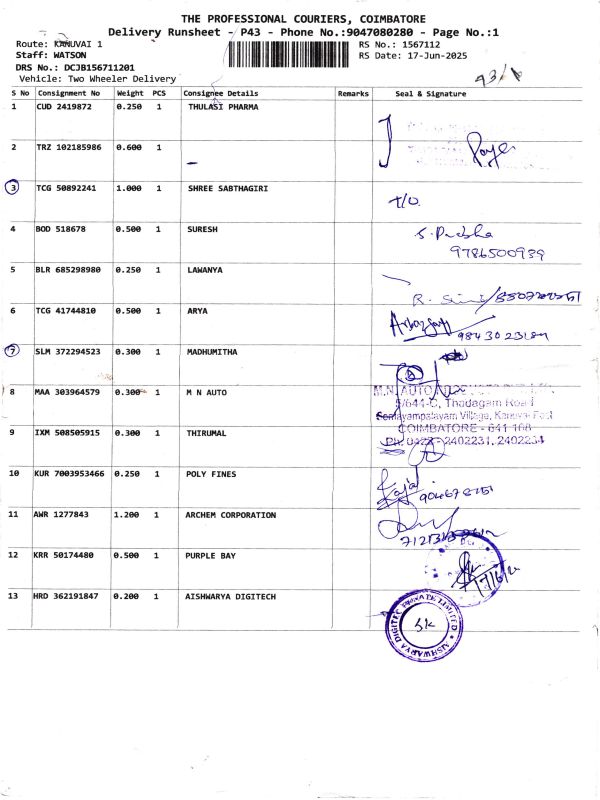 THE PROFESSIONAL COURIERS, COIMBATORE
Delivery Runsheet - P43 - Phone No.:9047080280 - Page No.:1
Route: KANUVAI 1 RS No.: 1567112
Staff: WATSON RS Date: 17-Jun-2025
DRS No.: DCJB156711201
Vehicle: Two Wheeler Delivery
S No Consignment No Weight PCS Consignee Details Remarks Seal & Signature
1 CUD 2419872 0.250 1 THULASI PHARMA
2 TRZ 102185986 0.600 1
3 TCG 50892241 1.000 1 SHREE SABTHAGIRI T/O.
4 BOD 518678 0.500 1 SURESH S. Prabha
9786500939
5 BLR 685298980 0.250 1 LAWANYA
6 TCG 41744810 0.500 1 ARYA
7 SLM 372294523 0.300 1 MADHUMITHA
8 MAA 303964579 0.300 1 M N AUTO M.N. AUTO
5/644-C, Thadagam Road
Somayampalayam Village, Kanuvai Post
COIMBATORE - 641 108
Ph: 0422 - 2402231, 2402234
9 IXM 508505915 0.300 1 THIRUMAL
10 KUR 7003953466 0.250 1 POLY FINES
11 AWR 1277843 1.200 1 ARCHEM CORPORATION
12 KRR 50174480 0.500 1 PURPLE BAY
13 HRD 362191847 0.200 1 AISHWARYA DIGITECH
AISHWARYA DIGITEC PRIVATE LIMITED
SK